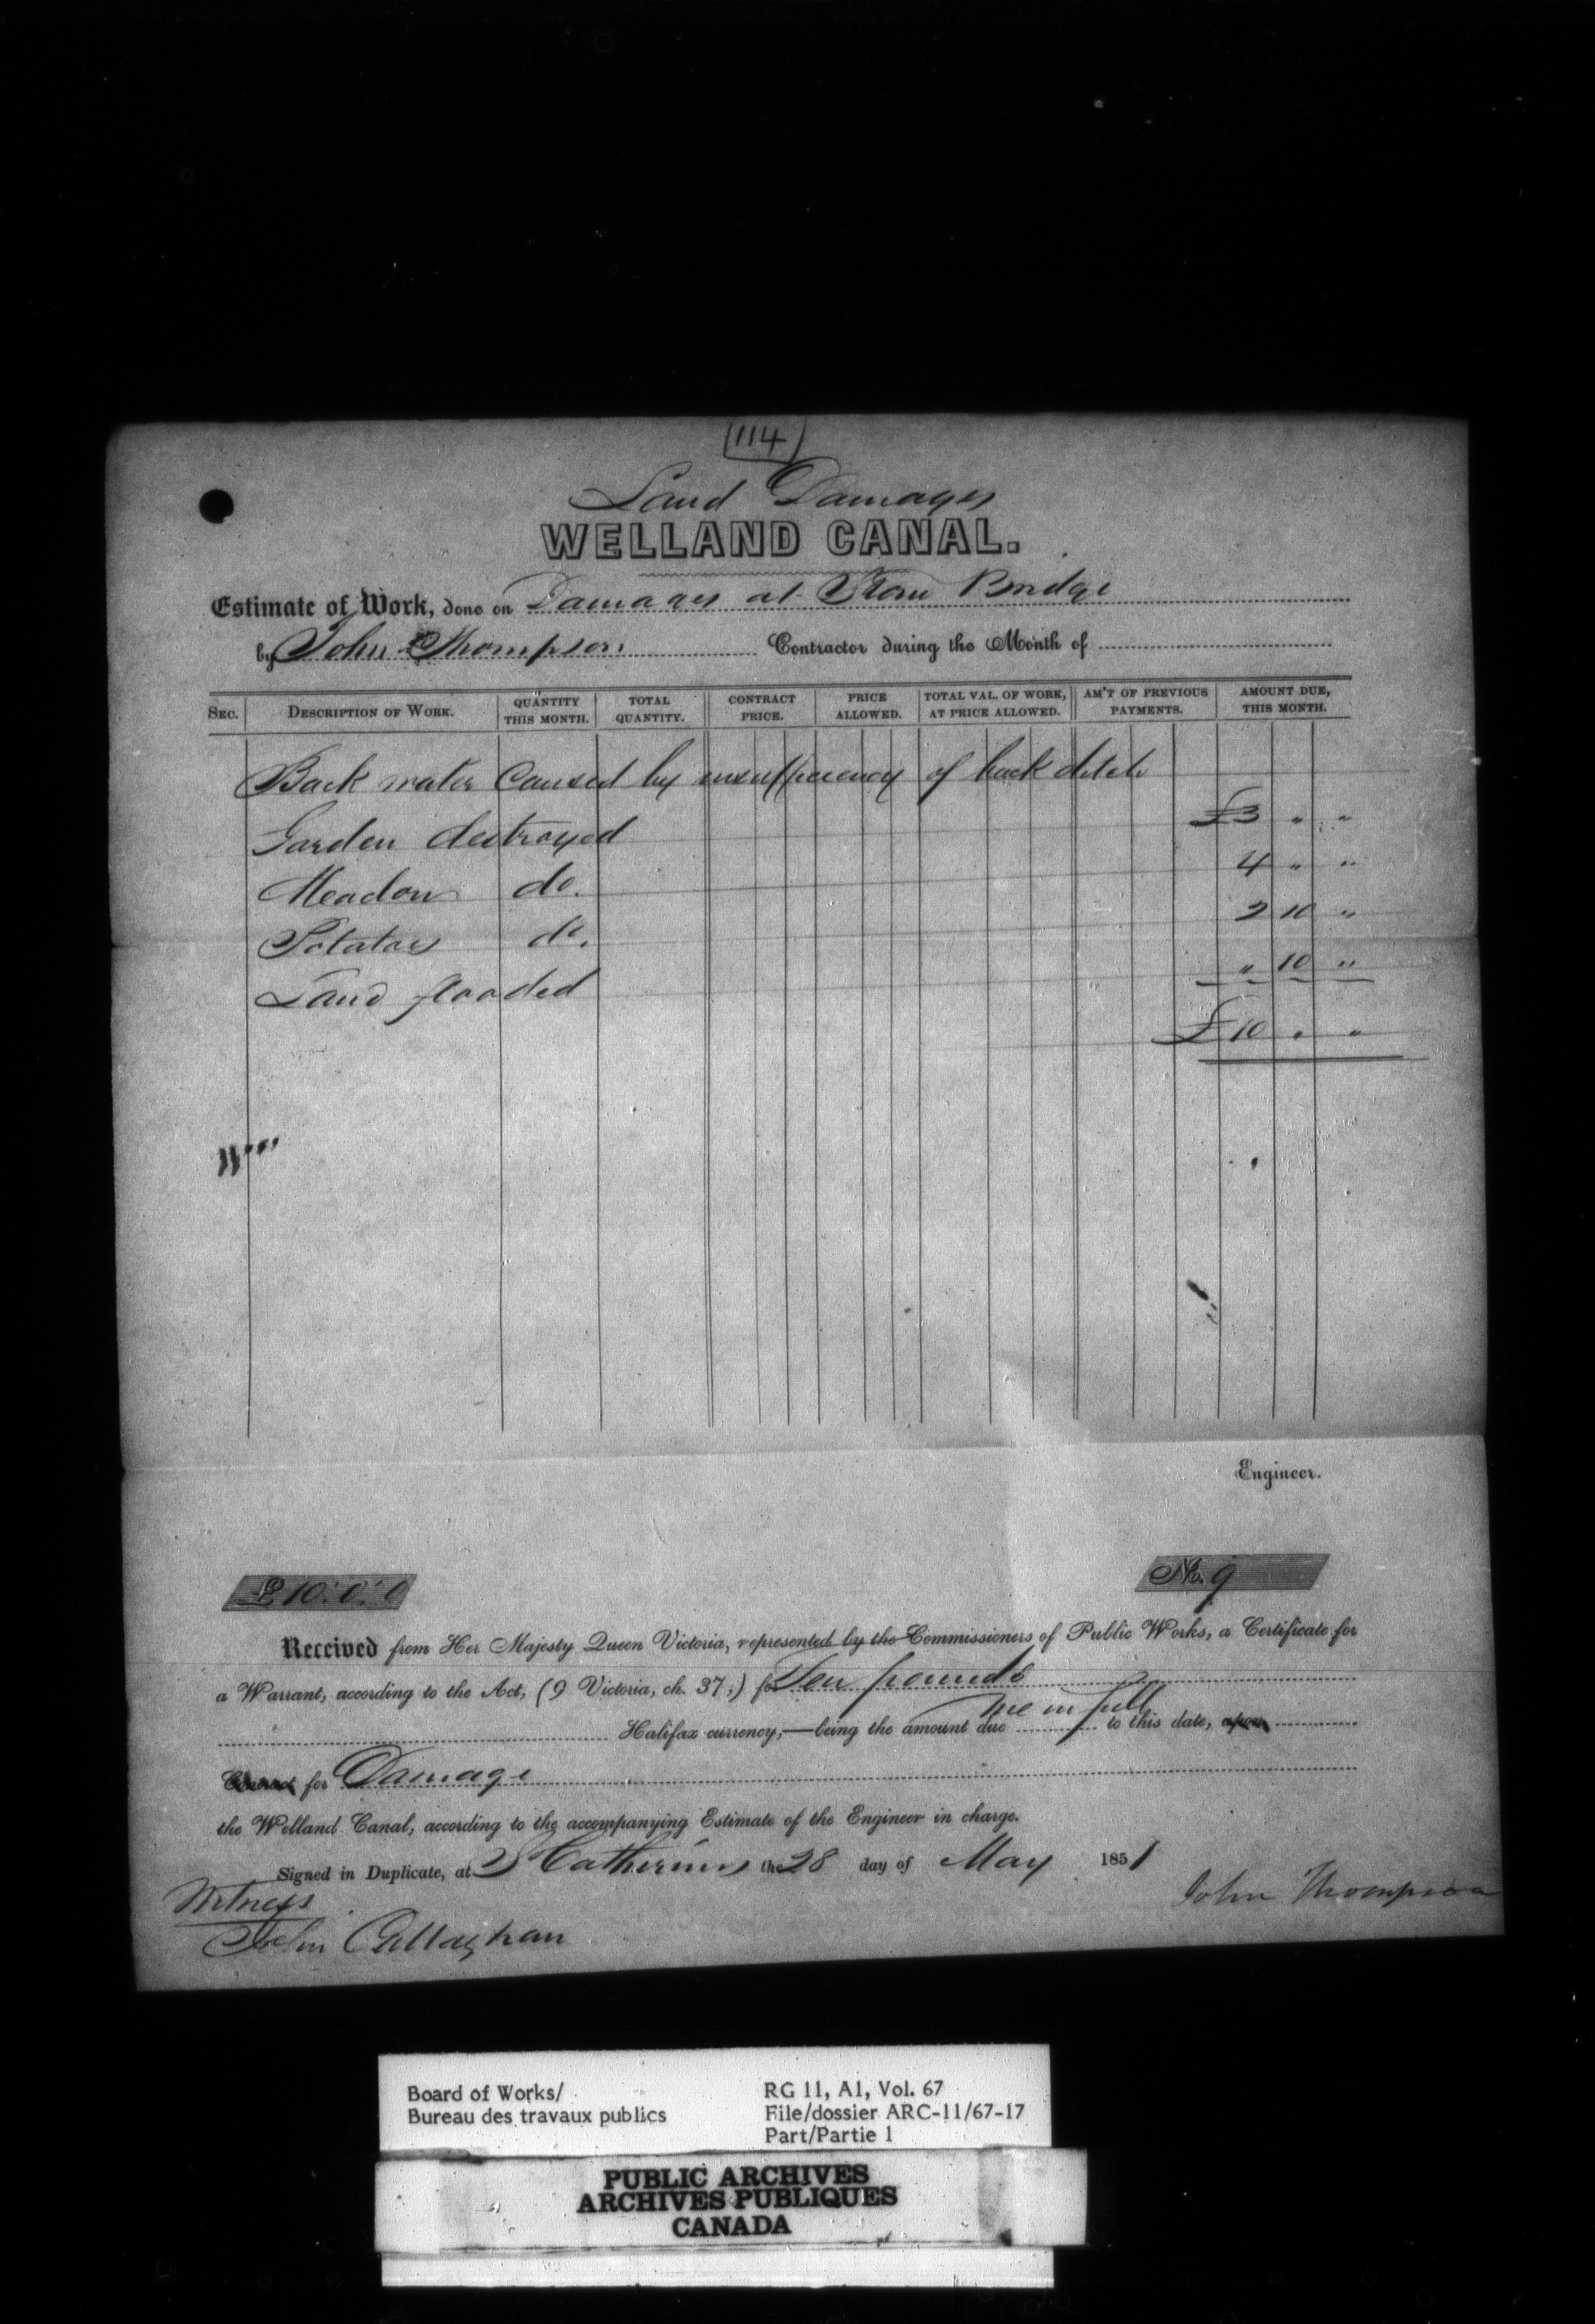 (114)
Land Damages
WELLAND CANAL.
Estimate of Work, done on Damages at Stone Bridge
by John Thompson Contractor during the Month of
SEC. DESCRIPTION OF WORK. QUANTITY THIS MONTH. TOTAL QUANTITY. CONTRACT PRICE. PRICE ALLOWED. TOTAL VAL. OF WORK, AT PRICE ALLOWED. AM'T OF PREVIOUS PAYMENTS. AMOUNT DUE, THIS MONTH.
Back water caused by insufficiency of back ditch
Garden destroyed £3 " "
Meadow do. 4 " "
Potatoes do. 2 10 "
Land flooded " 10 "
£10 " "
Engineer.
£10.0.0 No. 9
Received from Her Majesty Queen Victoria, represented by the Commissioners of Public Works, a Certificate for
a Warrant, according to the Act, (9 Victoria, ch. 37,) for Ten pounds
Halifax currency,—being the amount due me in full to this date, upon
for Damage
the Welland Canal, according to the accompanying Estimate of the Engineer in charge.
Signed in Duplicate, at St Catherines the 28 day of May 1851
Witness John Thompson
John Callaghan
Board of Works/ RG 11, A1, Vol. 67
Bureau des travaux publics File/dossier ARC-11/67-17
Part/Partie 1
PUBLIC ARCHIVES
ARCHIVES PUBLIQUES
CANADA